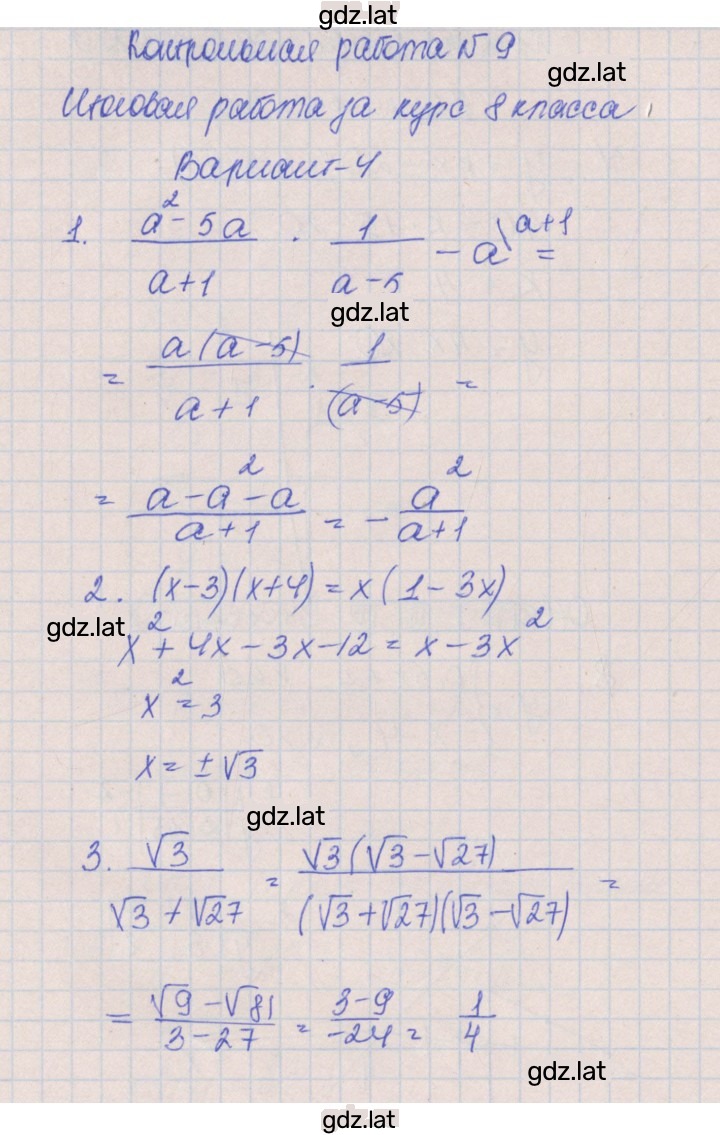 gdz.lat
Контрольная работа № 9
gdz.lat
Итоговая работа за курс 8 класса
Вариант-4
1. \frac{a^2-5a}{a+1} \cdot \frac{1}{a-5} - a^{\backslash a+1} =
gdz.lat
= \frac{a(a-5)}{a+1} \cdot \frac{1}{(a-5)} =
= \frac{a-a^2-a}{a+1} = -\frac{a^2}{a+1}
2. (x-3)(x+4) = x(1-3x)
gdz.lat
x^2+4x-3x-12 = x-3x^2
x^2 = 3
x = ±√3
gdz.lat
3. \frac{√3}{√3+√27} = \frac{√3(√3-√27)}{(√3+√27)(√3-√27)} =
= \frac{√9-√81}{3-27} = \frac{3-9}{-24} = \frac{1}{4}
gdz.lat
gdz.lat